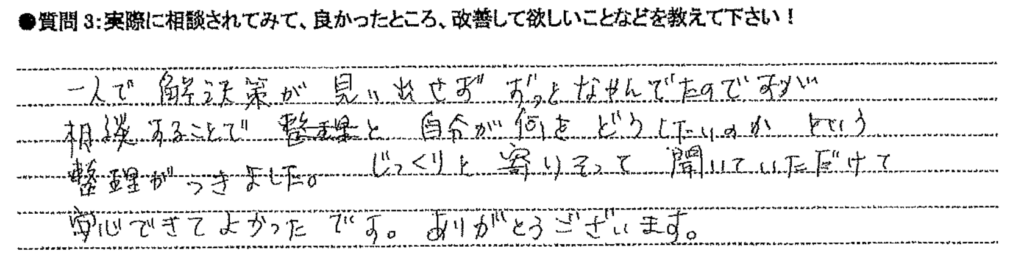 ●質問3:実際に相談されてみて、良かったところ、改善して欲しいことなどを教えて下さい!
一人で 解決策が 見い出せず ずっと なやんでたのですが
相談することで 整理と 自分が 何を どうしたいのか という
整理が つきました。 じっくりと 寄りそって 聞いていただけて
安心できて よかった です。 ありがとうございます。